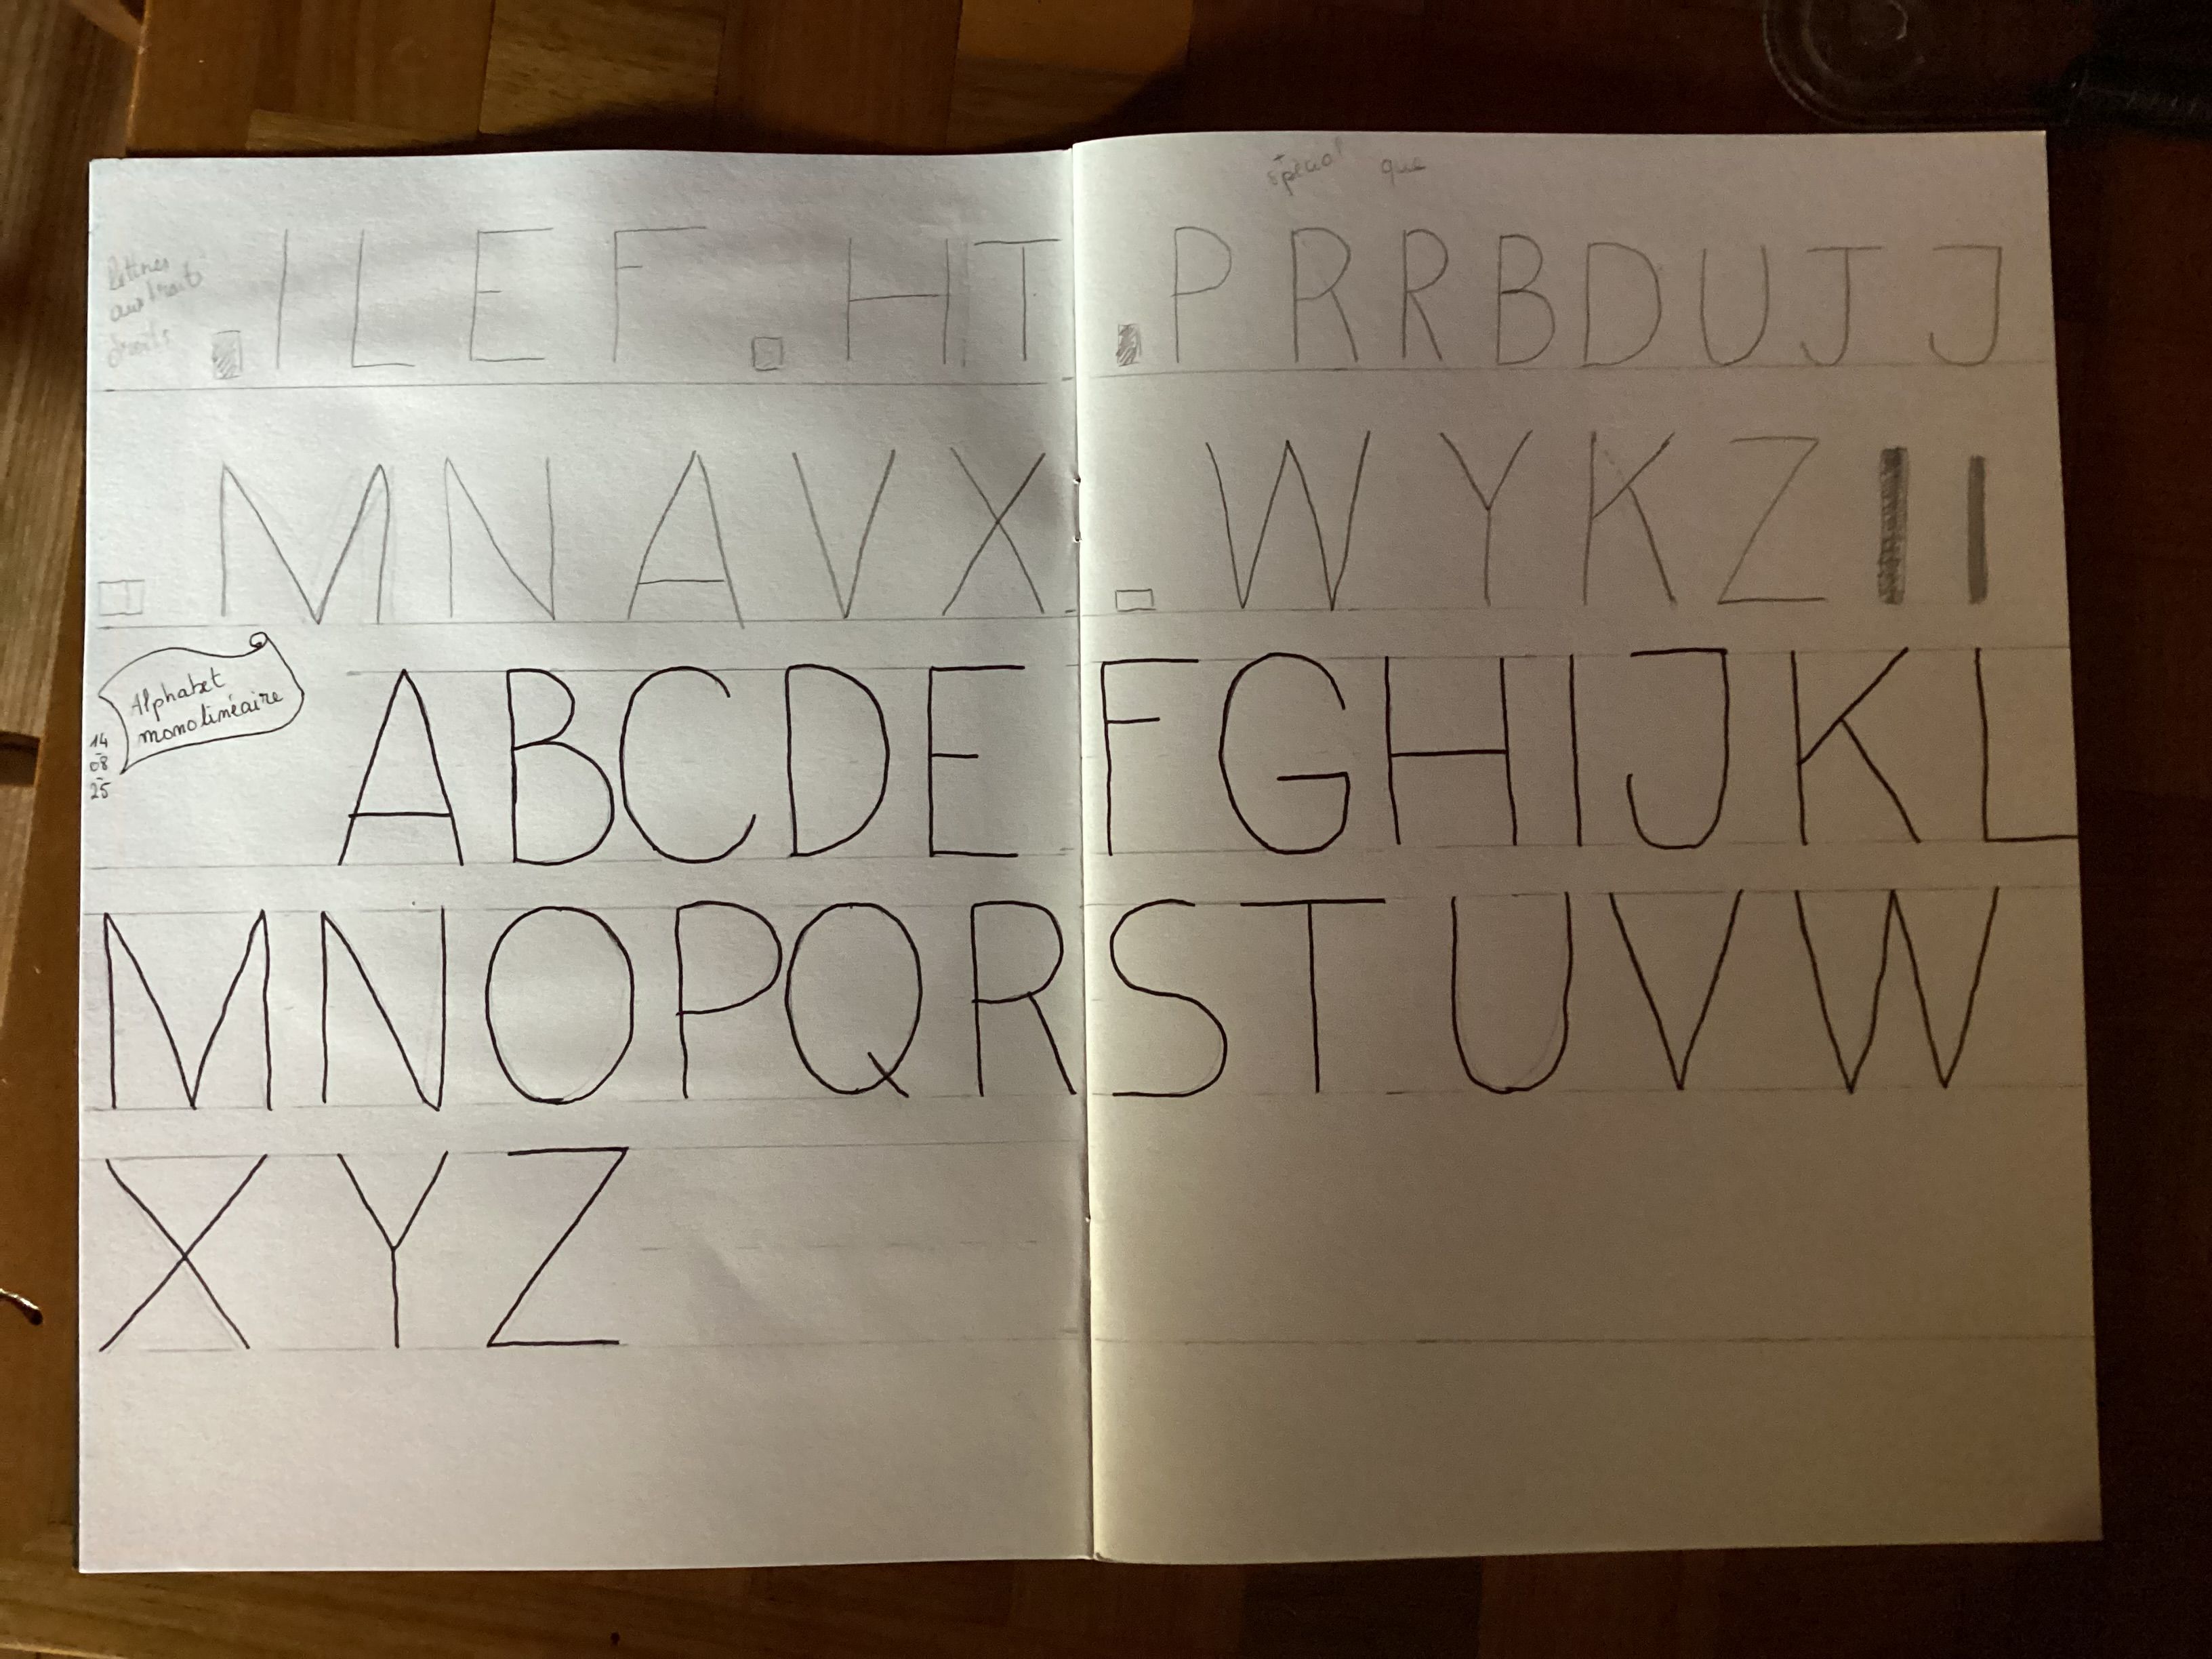 spécial que
Lettres
aux traits
droits
I L E F H I T P R R B D U J J
M N A V X W Y K Z I I
Alphabet
monolinéaire
14
-
08
-
25
A B C D E F G H I J K L
M N O P Q R S T U V W
X Y Z